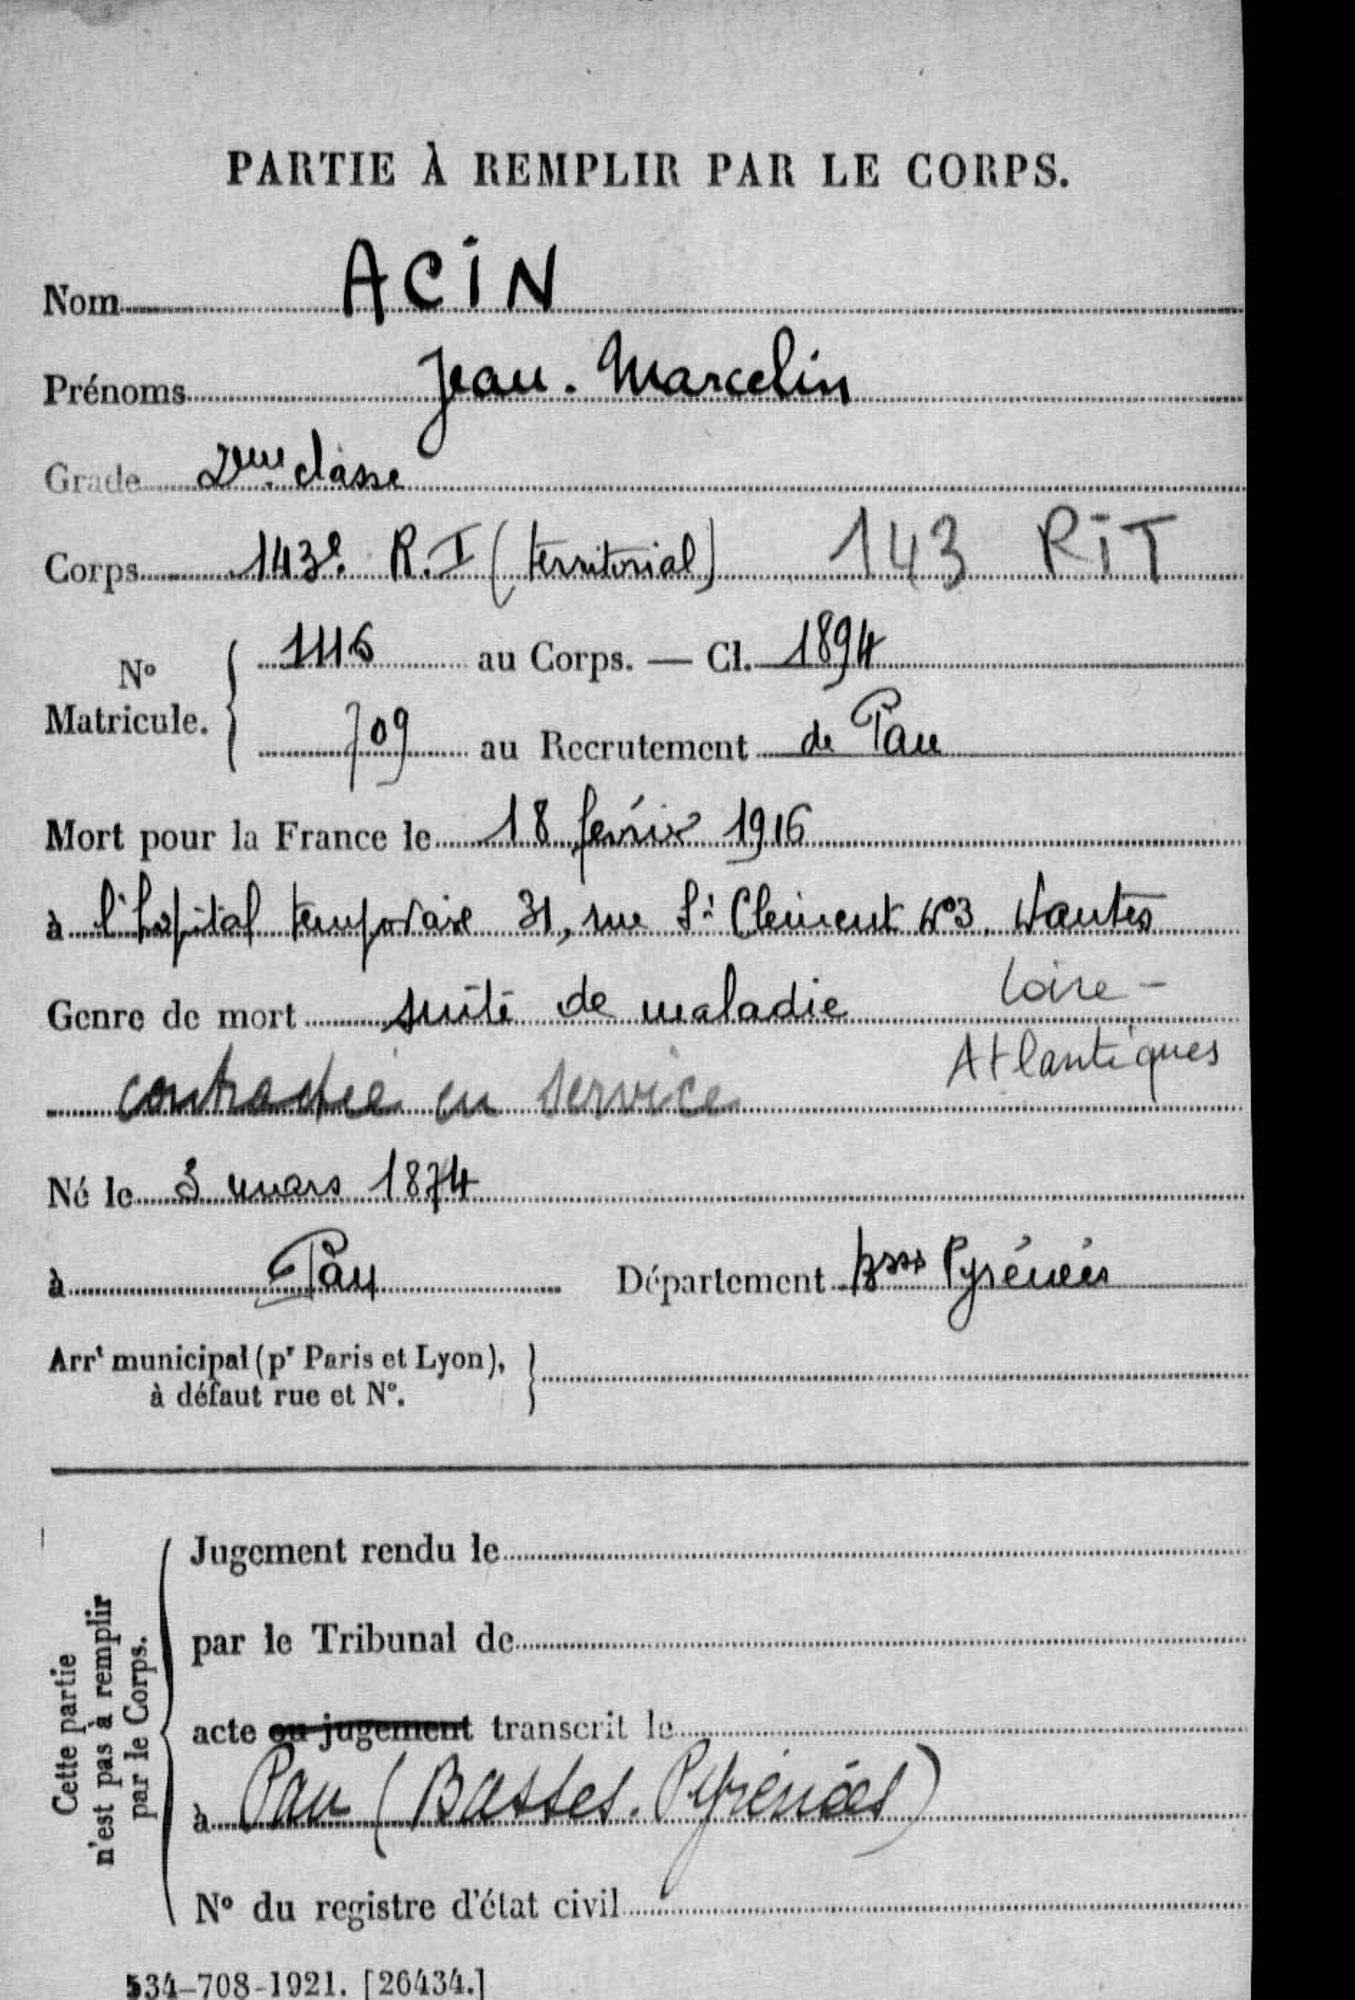 PARTIE À REMPLIR PAR LE CORPS.
Nom ACIN
Prénoms Jean. Marcelin
Grade 2eme classe
Corps 143e. R.I (territorial) 143 RIT
No Matricule. { 1116 au Corps. — Cl. 1894
709 au Recrutement de Pau
Mort pour la France le 18 fevrier 1916
à l'hopital temporaire 31, rue St Clement No3. Nantes
Loire -
Genre de mort suite de maladie
Atlantiques
contractée en service
Né le 3 mars 1874
à Pau Département Bsses Pyrénées
Arrt municipal (pr Paris et Lyon), }
à défaut rue et No.
Cette partie
n'est pas à remplir
par le Corps.
Jugement rendu le
par le Tribunal de
acte ou jugement transcrit le
à Pau (Basses. Pyrénées)
No du registre d'état civil
534-708-1921. [26434.]